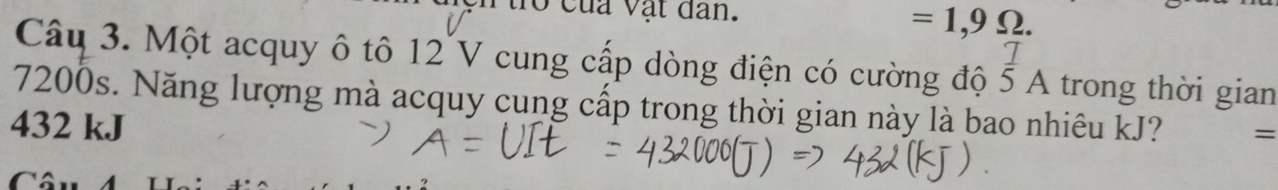 của vật dẫn.
= 1,9 Ω.
U I
Câu 3. Một acquy ô tô 12 V cung cấp dòng điện có cường độ 5 A trong thời gian
t
7200s. Năng lượng mà acquy cung cấp trong thời gian này là bao nhiêu kJ? =
432 kJ
=> A = UIt = 432000(J) => 432(kJ).
Câu 4